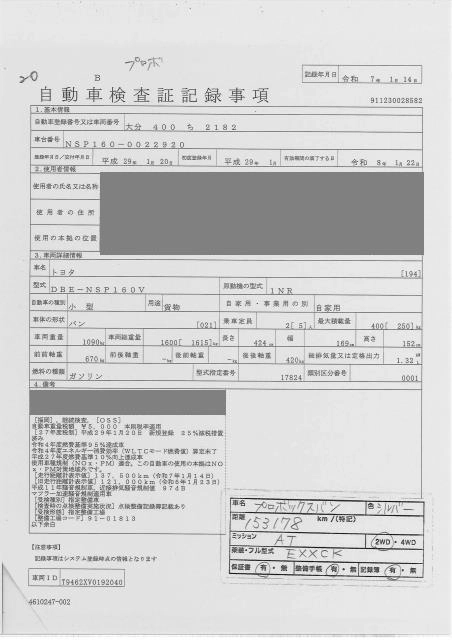 プロボ
20
B
記録年月日 令和 7年 1月 14日
自動車検査証記録事項
911230028582
1.基本情報
自動車登録番号又は車両番号 大分 400 ち 2182
車台番号 NSP160-0022920
登録年月日/交付年月日 平成 29年 1月 20日 初度登録年月 平成 29年 1月 有効期間の満了する日 令和 8年 1月 22日
2.使用者情報
使用者の氏名又は名称
使用者の住所
使用の本拠の位置
3.車両詳細情報
車名 トヨタ [194]
型式 DBE-NSP160V 原動機の型式 1NR
自動車の種別 小型 用途 貨物 自家用・事業用の別 自家用
車体の形状 バン [021] 乗車定員 2[ 5]人 最大積載量 400[ 250]kg
車両重量 1090kg 車両総重量 1600[ 1615]kg 長さ 424cm 幅 169cm 高さ 152cm
前前軸重 670kg 前後軸重 -kg 後前軸重 -kg 後後軸重 420kg 総排気量又は定格出力 1.32
燃料の種類 ガソリン 型式指定番号 17824 類別区分番号 0001
4.備考
[福岡],継続検査,[OSS]
自動車重量税額 ¥5,000 本則税率適用
[27年度税制]平成29年1月20日 新規登録 25%軽減措置
済み
令和4年度燃費基準95%達成車
令和4年度エネルギー消費効率(WLTCモード燃費値)算定未了
平成27年度燃費基準10%向上達成車
使用車種規制(NOx・PM)適合,この自動車の使用の本拠はNO
x・PM対策地域外です。
[走行距離計表示値]137,500km(令和7年1月14日)
[旧走行距離計表示値]121,000km(令和6年1月23日)
平成11年騒音規制車,近接排気騒音規制値 97dB
マフラー加速騒音規制適用車
[受検種別]指定整備車
[検査時の点検整備実施状況]点検整備記録簿記載あり
[受検形態]指定整備工場
[整備工場コード]91-01813
以下余白
車名 プロボックスバン 色 シルバー
距離 153178 km/(特記)
ミッション AT 2WD・4WD
架装・フル型式 EXXCK
保証書 有・無 整備手帳 有・無 記録簿 有・無
[注意事項]
記録事項はシステム登録時点の情報となります
車両ID T9462XV0192040
4610247-002